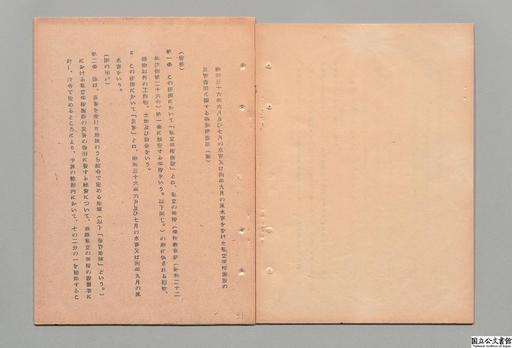 昭和三十六年六月及び七月の水害又は同年九月の風水害を受けた私立学校施設の
災害復旧に関する特別措置法(案)
(定義)
第一条 この法律において「私立学校施設」とは、私立の学校(学校教育法(昭和二十二
年法律第二十六号)第一条に規定する学校をいう。以下同じ。)の用に供される建物、
建物以外の工作物、土地及び設備をいう。
2 この法律において「災害」とは、昭和三十六年六月及び七月の水害又は同年九月の風
水害をいう。
(国の補助)
第二条 国は、災害を受けた地域のうち政令で定める地域(以下「被害地域」という。)
における私立学校施設の災害の復旧に要する経費について、当該私立の学校の設置者に
対し、政令で定めるところにより、予算の範囲内において、その二分の一を補助するこ
国立公文書館
National Archives of Japan